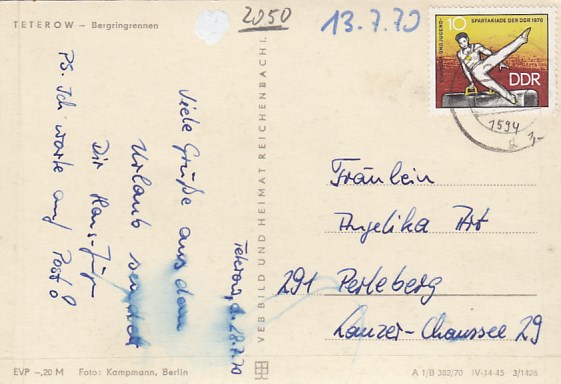 TETEROW – Bergringrennen
2050
13.7.70
10 SPARTAKIADE DER DDR 1970
DDR
1594
Teterow, d. 28.7.70
Viele Grüße aus dem
Urlaub sendet
Dir Hans-Jürgen
PS. Ich warte auf Post!
VEB BILD UND HEIMAT REICHENBACH I.
Fräulein
Angelika Art
291 Perleberg
Lanzer-Chaussee 29
EVP –,20 M Foto: Kampmann, Berlin
A 1/B 382/70 IV-14-45 3/1426